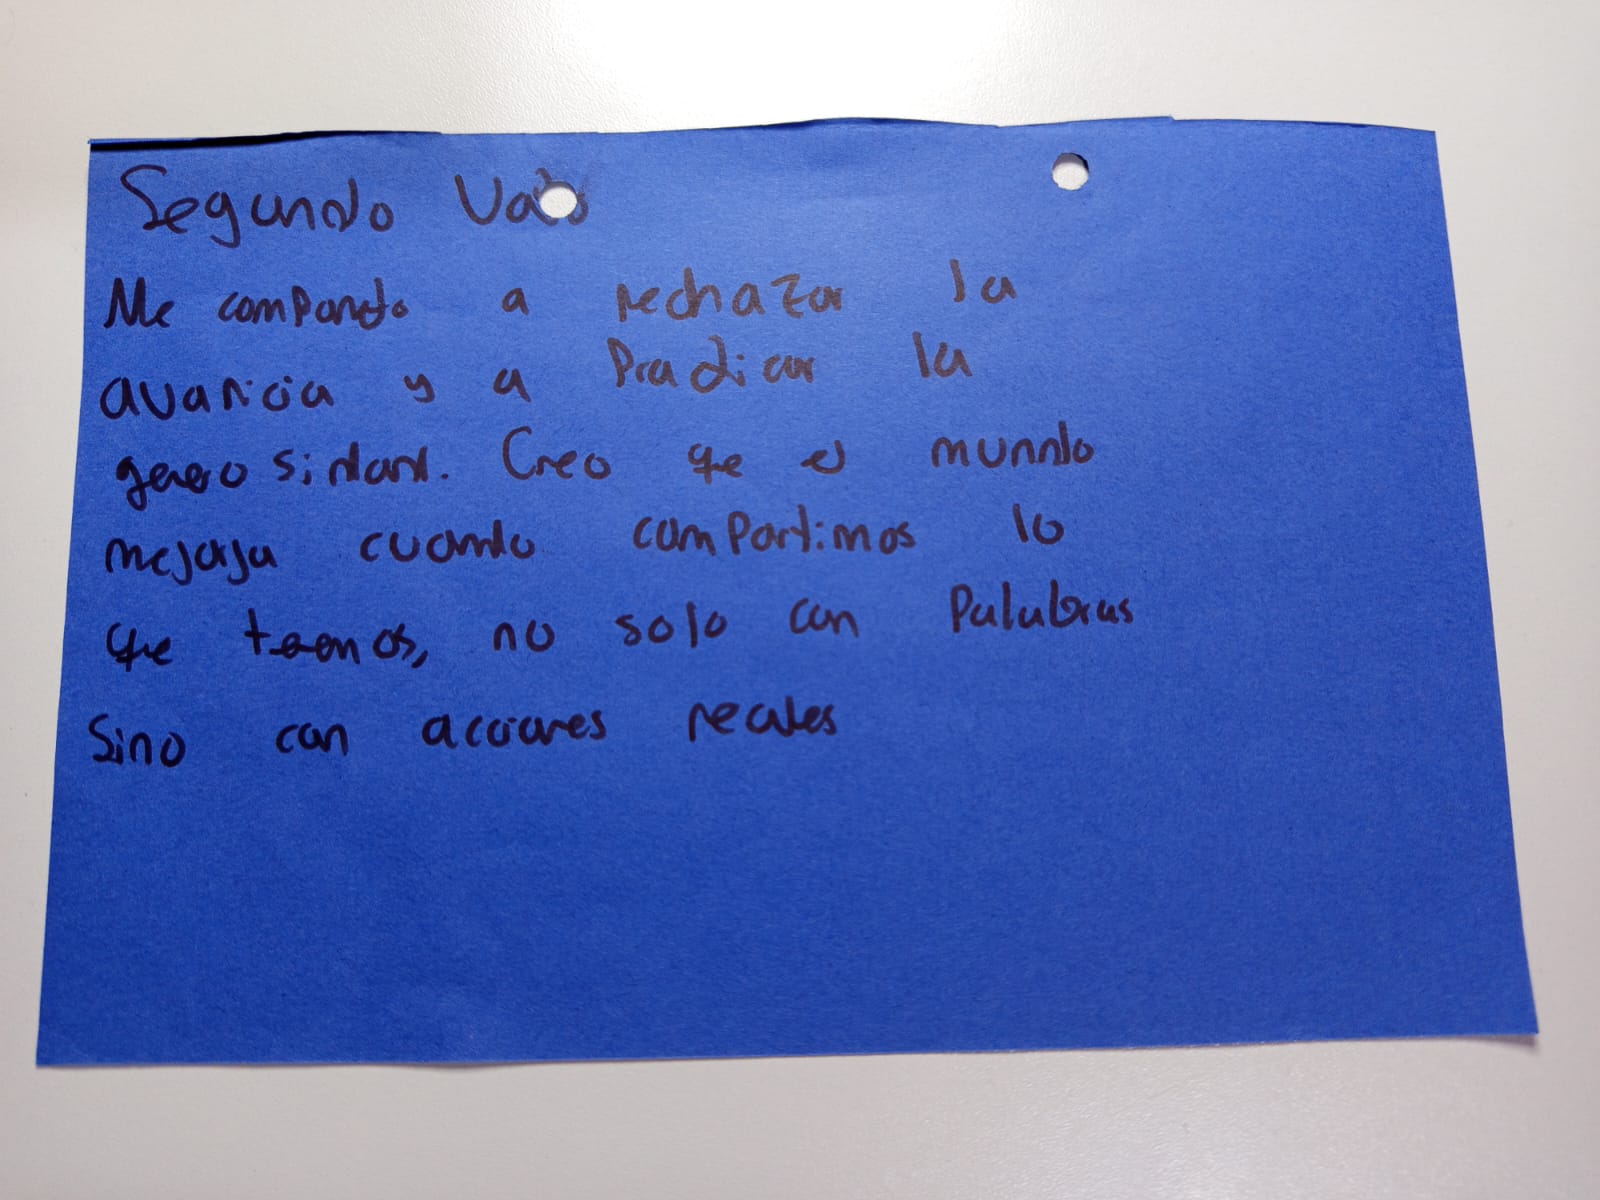 Segundo
Me comparto a rechazar la
avaricia y a Practicar la
generosidad. Creo que el mundo
mejora cuando compartimos lo
que tenemos, no solo con Palabras
Sino con acciones reales